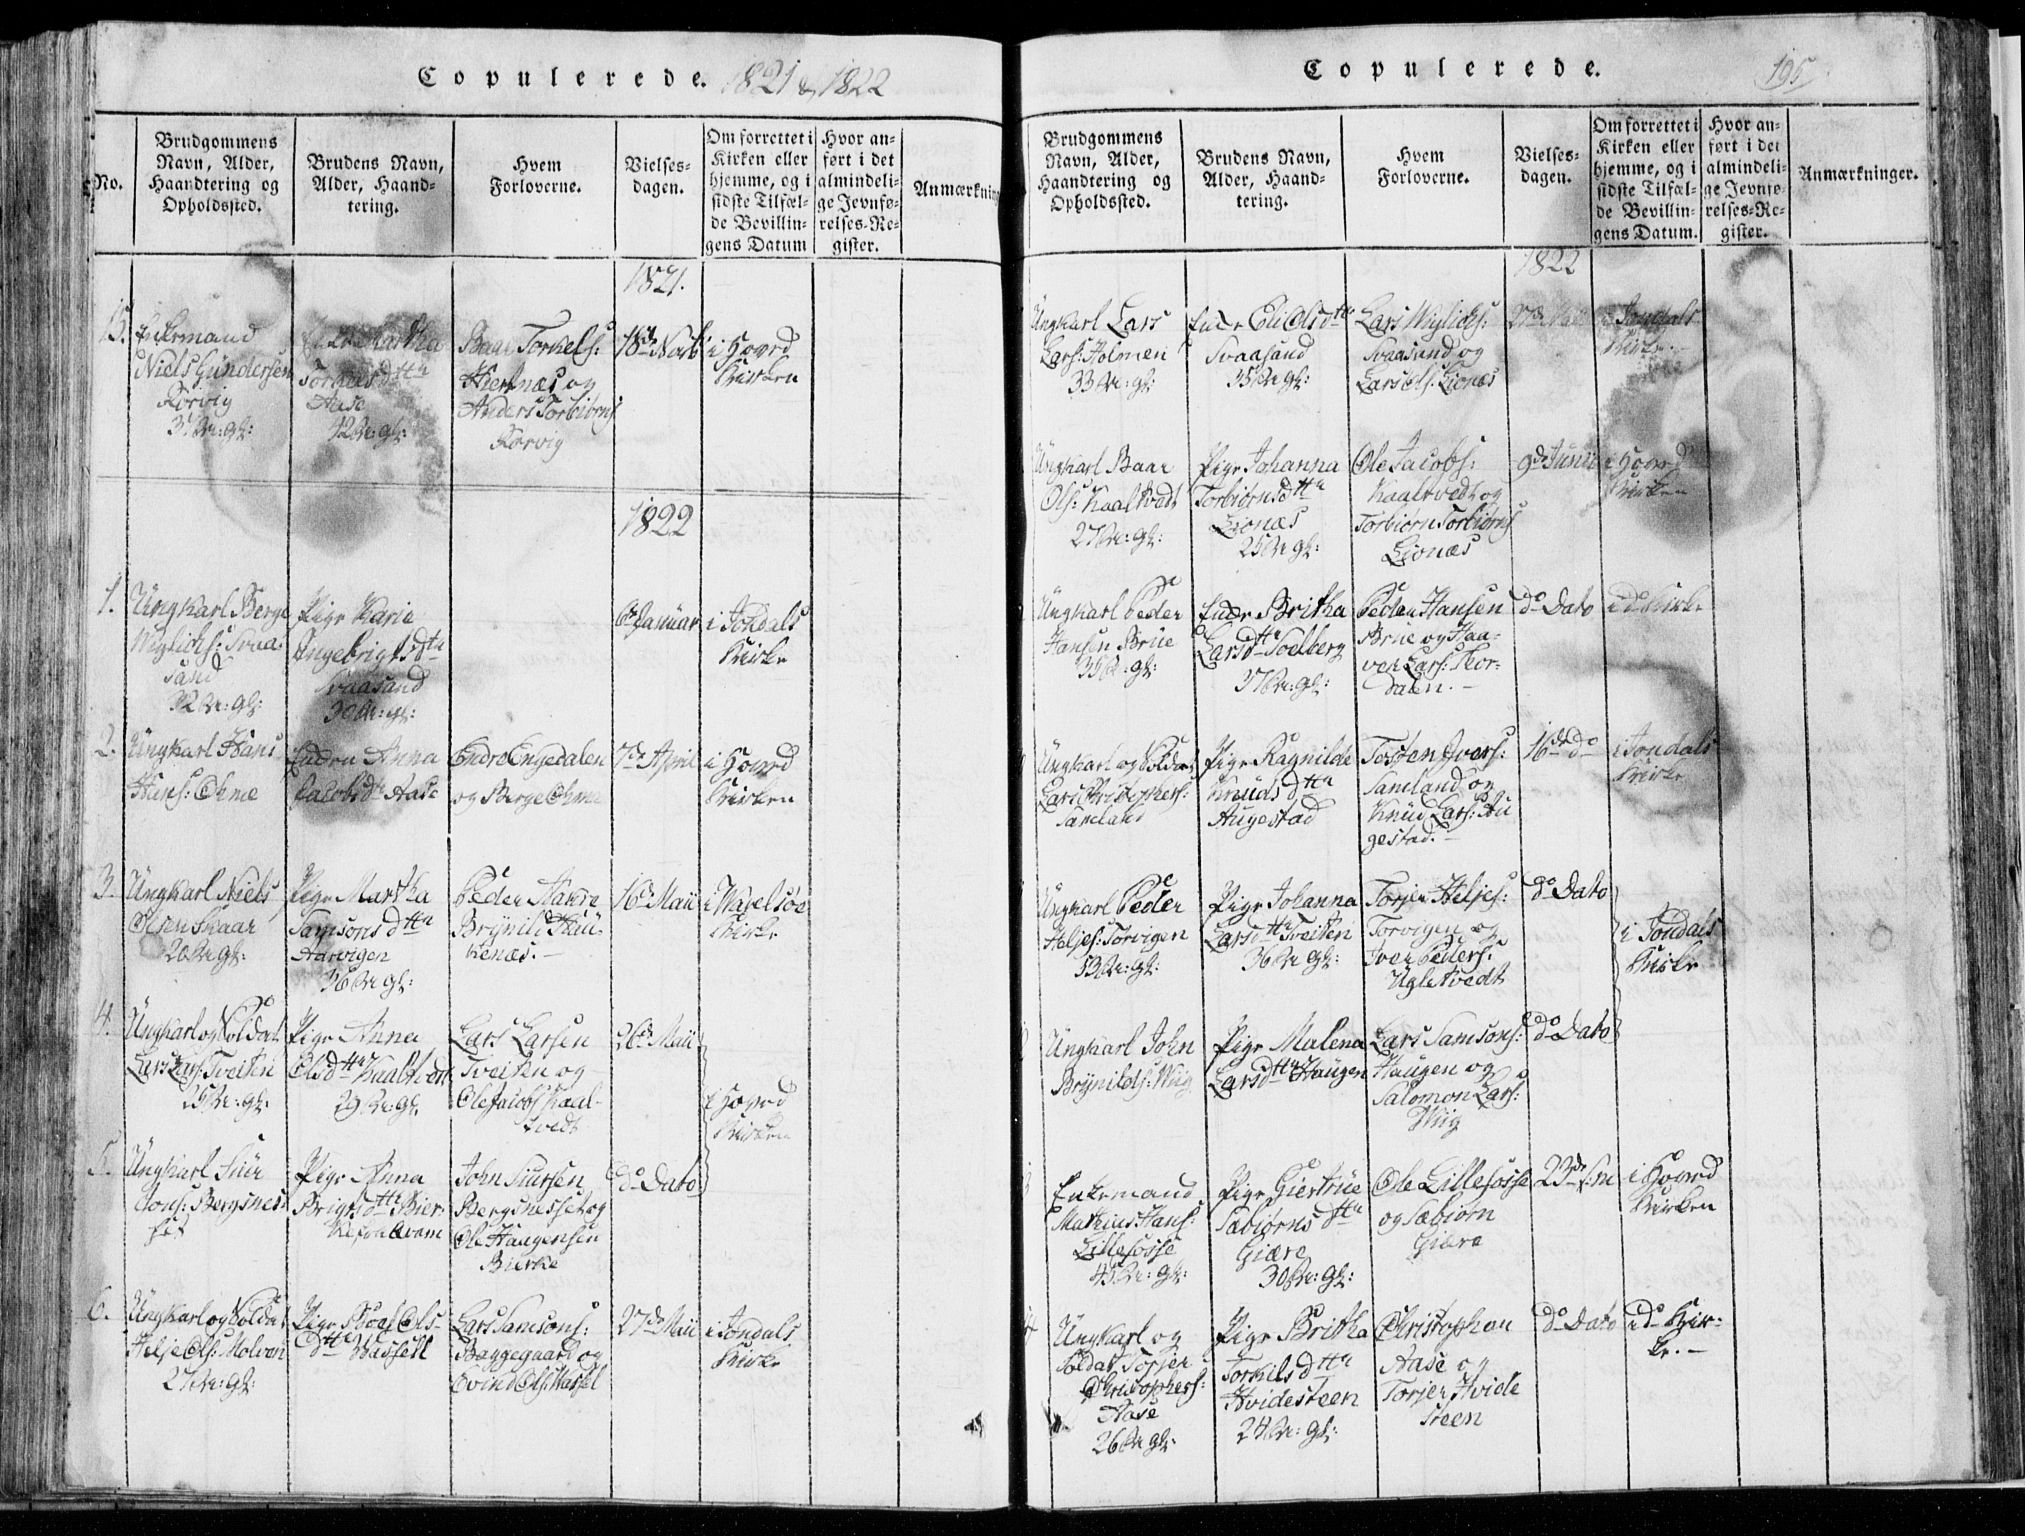 Copulerede. 1821 & 1822
No.
Brudgommens
Navn, Alder,
Haandtering og
Opholdssted.
Brudens Navn,
Alder, Haand-
tering.
Hvem
Forloverne.
Vielses-
dagen.
Om forrettet i
Kirken eller
hjemme, og i
sidste Tilfæl-
de Bevillin-
gens Datum
Hvor an-
ført i det
almindeli-
ge Jevnfø-
relses-Re-
gister.
Anmærkning
1821.
15. Enkemand
Niels Gundersen
Rørvig
Aase
42 Ar: gl:
Baar Torkels:
Hiertnæs og
Anders Torbiørns
Rørvig
18de Novb
i Hoved
Kirken
1822
1. Ungkarl Berge
Wiglichs: Svaa-
sand
32 Ar: gl:
Pige Karie
Ingebrigts dttr
Svaasand
30 Ar: gl:
6te Januar
i Jondals
Kirke
2. Ungkarl Hans
Hans: Ohme
Enken Anna
Jacobs dtr Aase
Endre Engedalen
og Berge Ohme
7de April
i Hoved
Kirken
3. Ungkarl Niels
Olsen Skaar
20 Ar gl:
Pige Martha
Samsons dttr
Aarvigen
36 Ar gl:
Peder Aakre
Brynild Skau-
kenæs.
16de Maii
i Waxelsøe
Kirke
4. Ungkarl og Soldat
Lars Lars: Tveiten
25 Ar: gl:
Pige Anna
Olsdttr Kaaltvedt
29 Ar: gl.
Lars Larsen
Tveiten og
Ole Jacobs Kaal-
tvedt
26de Maii
i Hoved
Kirken
5. Ungkarl Siur
Jons: Bergsnes-
set
Pige Anna
Brigtsdttr Bier-
John Siursen
Bergsnesset og
Ole Haagensen
Bierke
do Dato
6. Ungkarl og Soldat
Helje Ols: Molven
27 Ar: gl:
Ols-
dttr Wassell
Lars Samsons:
Baggegaard og
Ovind Ols: Wassel
27de Maii
i Jondals
Kirke
Copulerede.
195
Brudgommens
Navn, Alder,
Haandtering og
Opholdssted.
Brudens Navn,
Alder, Haand-
tering.
Hvem
Forloverne.
Vielses-
dagen.
Om forrettet i
Kirken eller
hjemme, og i
sidste Tilfæl-
de Bevillin-
gens Datum.
Hvor an-
ført i det
almindeli-
ge Jevnfø-
relses-Re-
gister.
Anmærkninger.
1822
Ungkarl Lars
Lars: Holmen
33 Ar: gl:
Enke Eli Olsdttr
Svaasand
35 Ar gl:
Lars Wiglichs:
Svaasand og
Lars Ols: Lionæs
27de
i Jondals
Kirke.
Ungkarl Baar
Ols: Kaaltvedt
27 Ar: gl:
Pige Johanna
Torbiørnsdttr
Lionæs
25 Ar gl:
Ole Jacobs:
Kaaltvedt og
Torbiørn Torbiørns
Lionæs
9de Junii
i Hoved
Kirken
Ungkarl Peder
Hansen Brue
Enke Britha
Larsdttr Solberg
37 Ar: gl:
Peder Hansen
Brue og Haa-
ver Lars: Thor-
dalen.
do Dato
i do Kirke
Ungkarl og Soldat
Lars Christophers:
Samland
Pige Ragnilde
Knuds dttr
Augestad
Tosten Ivers:
Samland og
Knud Lars: Au
gestad.
16de do
i Jondals
Kirke
Ungkarl Peder
Heljes: Torvigen
53 Ar: gl:
Pige Johanna
Larsdttr Tveiten
36 Ar gl:
Torjer Heljes:
Torvigen og
Iver Peders:
Ugletvedt
do Dato
i Jondals
Kirke
Ungkarl John
Brynilds: Wiig
Pige Malena
Larsdttr Haugen
Lars Samsons:
Haugen og
Salomon Lars:
Wiig
do Dato
Enkemand
Mathias Hans:
Lillesosse
45 Ar: gl:
Pige Giertrue
Sæbiørns dttr
Giære
30 Ar: gl:
Ole Lillesosse
og Sæbiørn
Giære
23de s: m
i Hoved
Kirken
Ungkarl og
Soldat Torjer
Christophers:
Aase
26 Ar gl:
Pige Britha
Torkels dttr
Hvidesteen
24 Ar: gl:
Christopher
Aase og
Torjer Hvide
steen
do Dato
i do Kir-
ke.